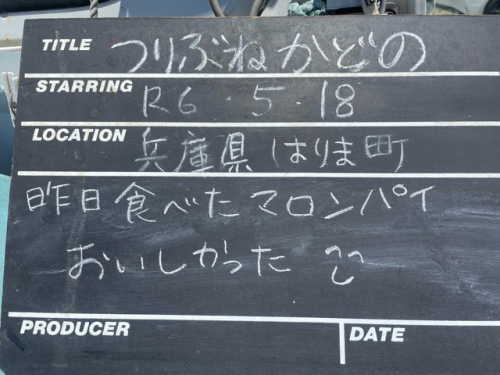 TITLE つりぶねかどの
STARRING R6・5・18
LOCATION 兵庫県はりま町
昨日食べたマロンパイ
おいしかった
PRODUCER DATE